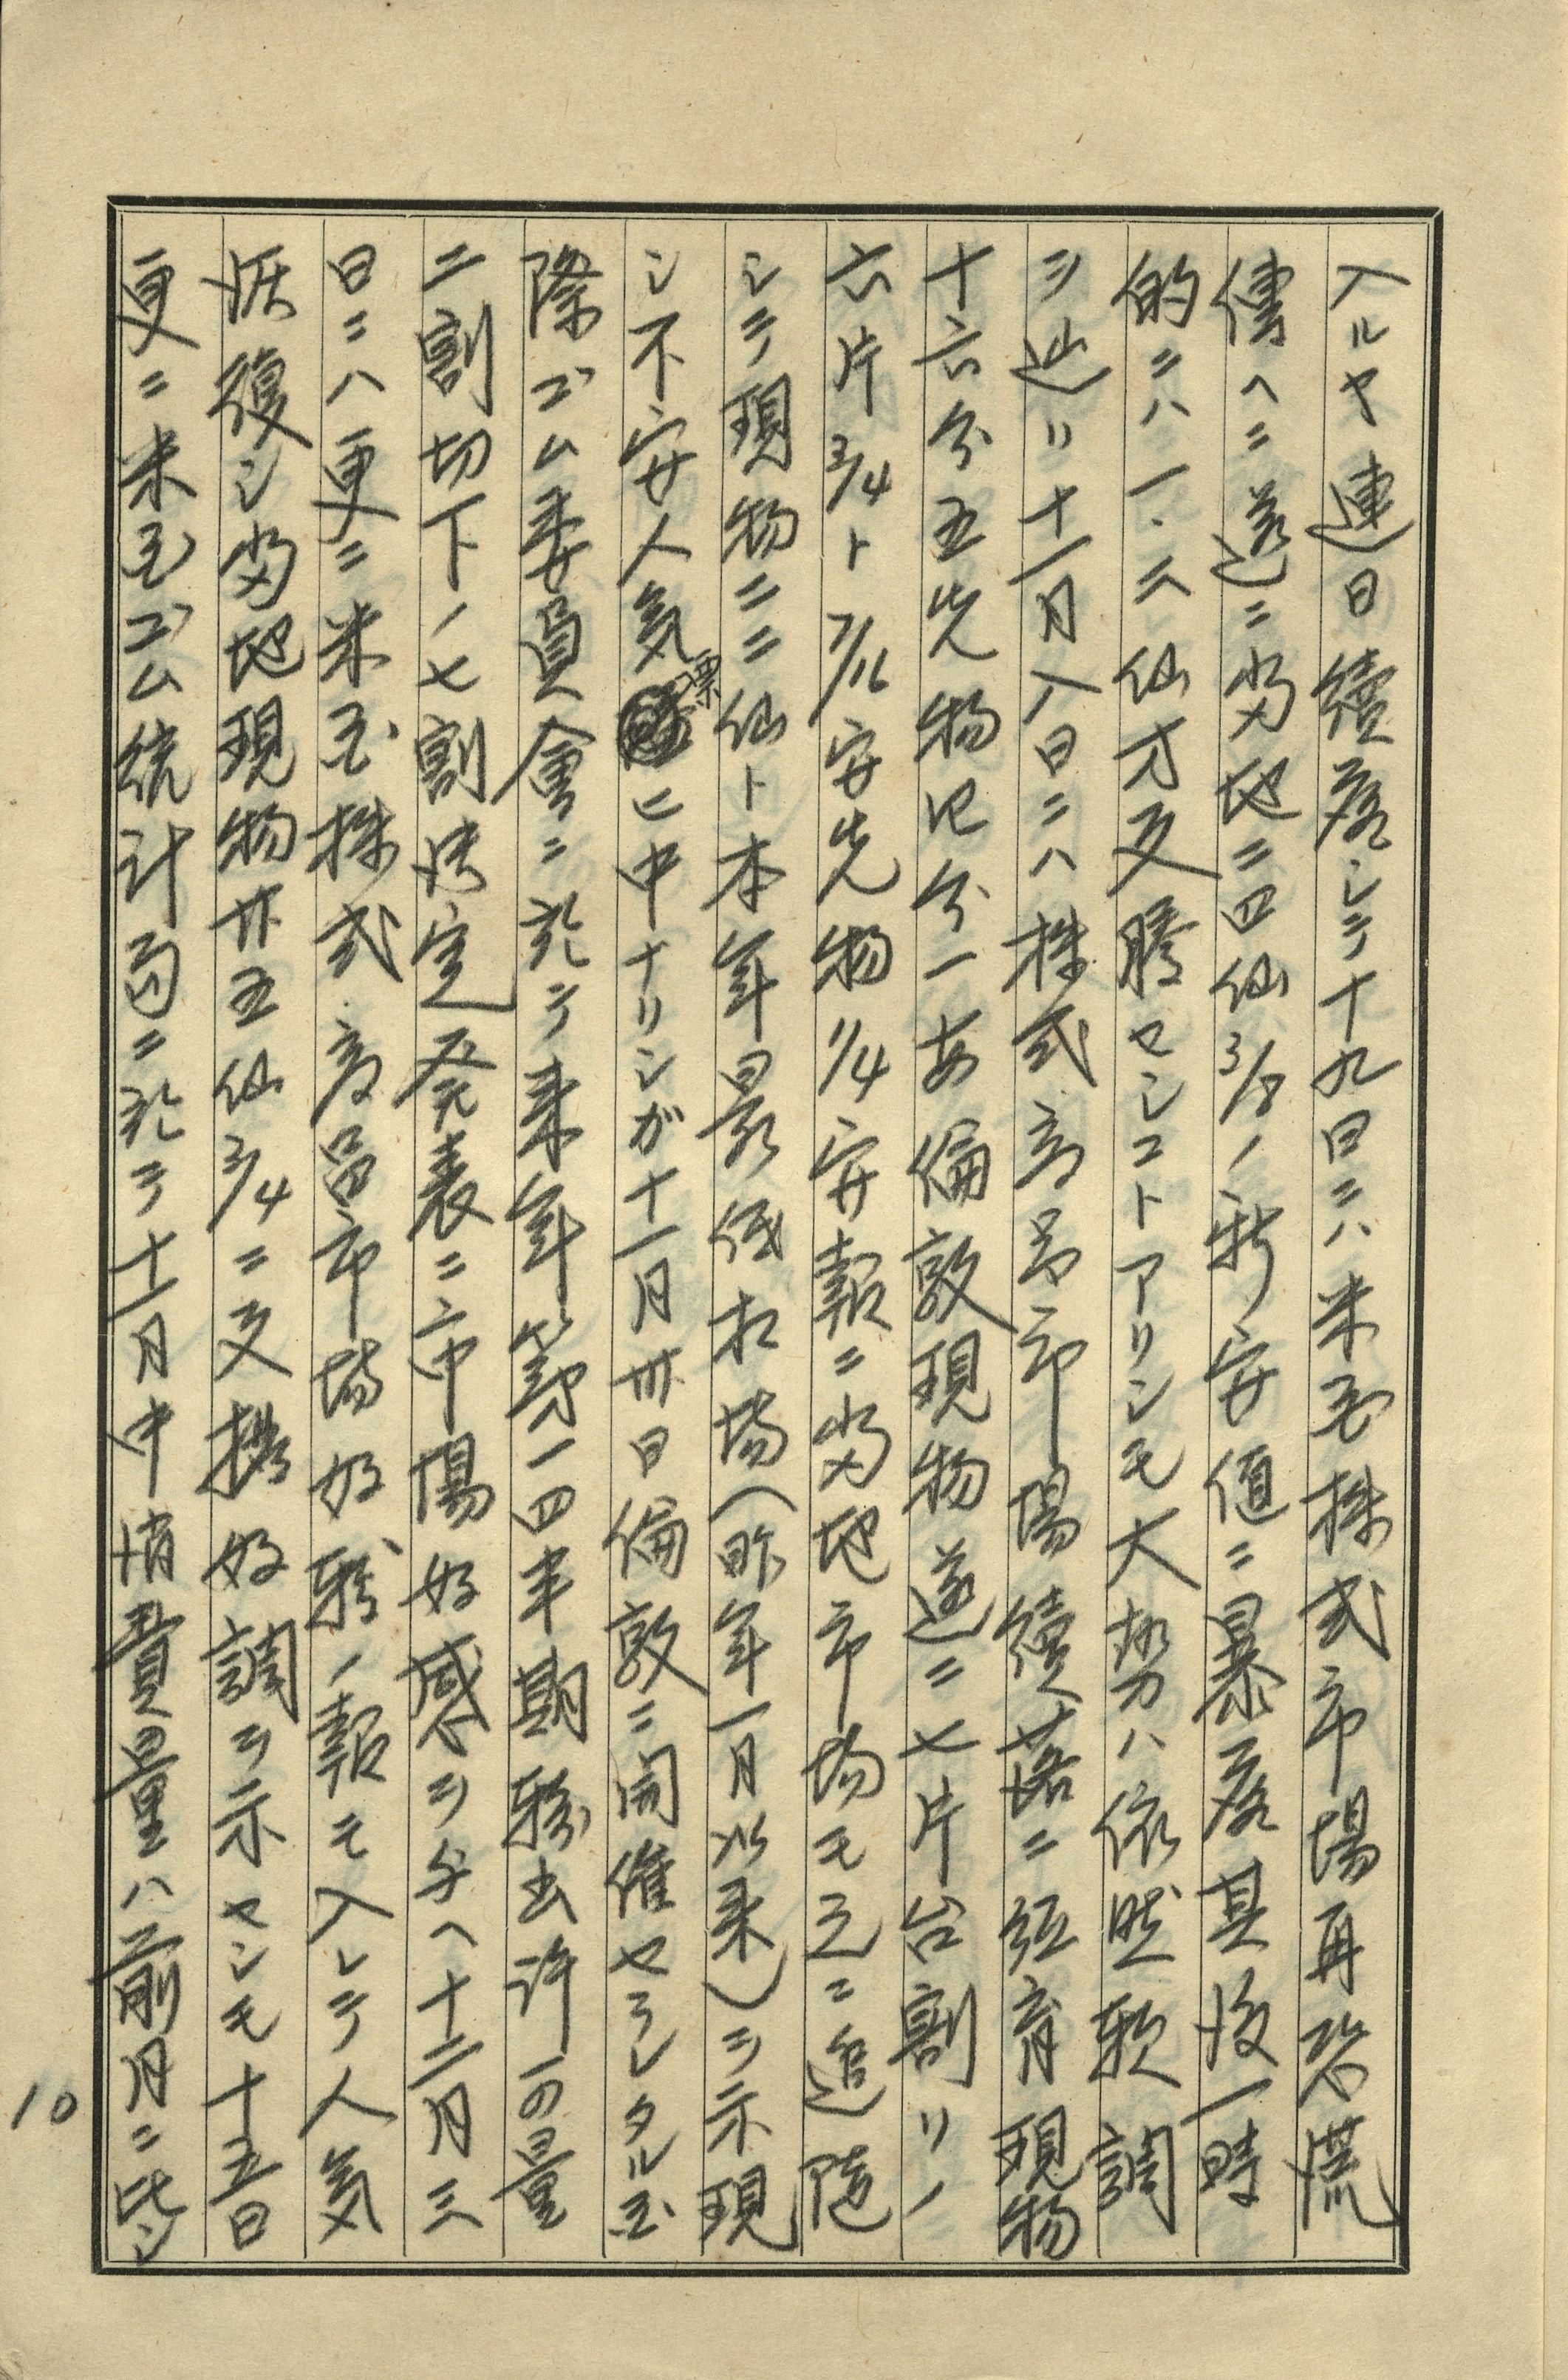 入ルヤ連日續落シテ十九日ニハ米國株式市場再恐慌
傳ヘニ遂ニ當地ニ四仙3/8ノ新安値ニ暴落其後一時
的ニハ一・二仙方反騰セシコトアリシモ大勢ハ依然軟調
ヲ辿リ十一月八日ニハ株式商品市場續落ニ紐育現物
十六分五先物四分一安倫敦現物遂ニ七片台割リノ
六片3/4ト7/16安先物1/4安報ニ當地市場モ之ニ追随
シテ現物ニ二仙ト本年最低相場(昨年一月以来)ヲ示現
シ不安人気漂ヒ中ナリシガ十一月卅日倫敦ニ開催セラレタル国
際ゴム委員會ニ於テ来年第一四半期輸出許可量
二割切下ノ七割決定発表ニ市場好感ヲ与ヘ十二月三
日ニハ更ニ米国株式・商品市場好転ノ報モ入レテ人気
恢復シ當地現物廿五仙3/4ニ反撥好調ヲ示セシモ十五日
更ニ米国ゴム統計面ニ於テ十一月中消費量ハ前月ニ比シ
10